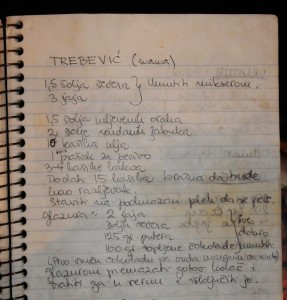 TREBEVIĆ (mama)
1,5 šolja šećera } umutiti mikserom.
3 jaja
1,5 šolja mljevenih oraha
2 šolje rendanih jabuka
kašika ulja
1 prašak za pecivo
3-4 kašike kakaa
Dodati 15 kašika brašna da bude
kao razljevak.
Staviti na podmazani pleh da se peče.
glazura: 2 jaja
šolja šećera
125 gr. putera
100 gr. topljene čokolade
sve
dobro
umutiti
(Ako nema čokoladu
glazurom premazati gotov kolač i